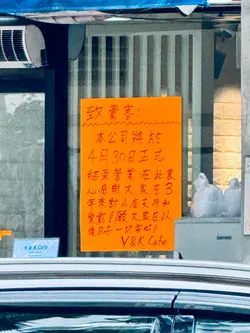 致貴客:
本公司將於
4月30日正式
結束營業在此衷
心感謝大家在3
年來對小店支持和
愛戴!願大家在以
後日子一切安好!
V&K Cafe
V&K Cafe